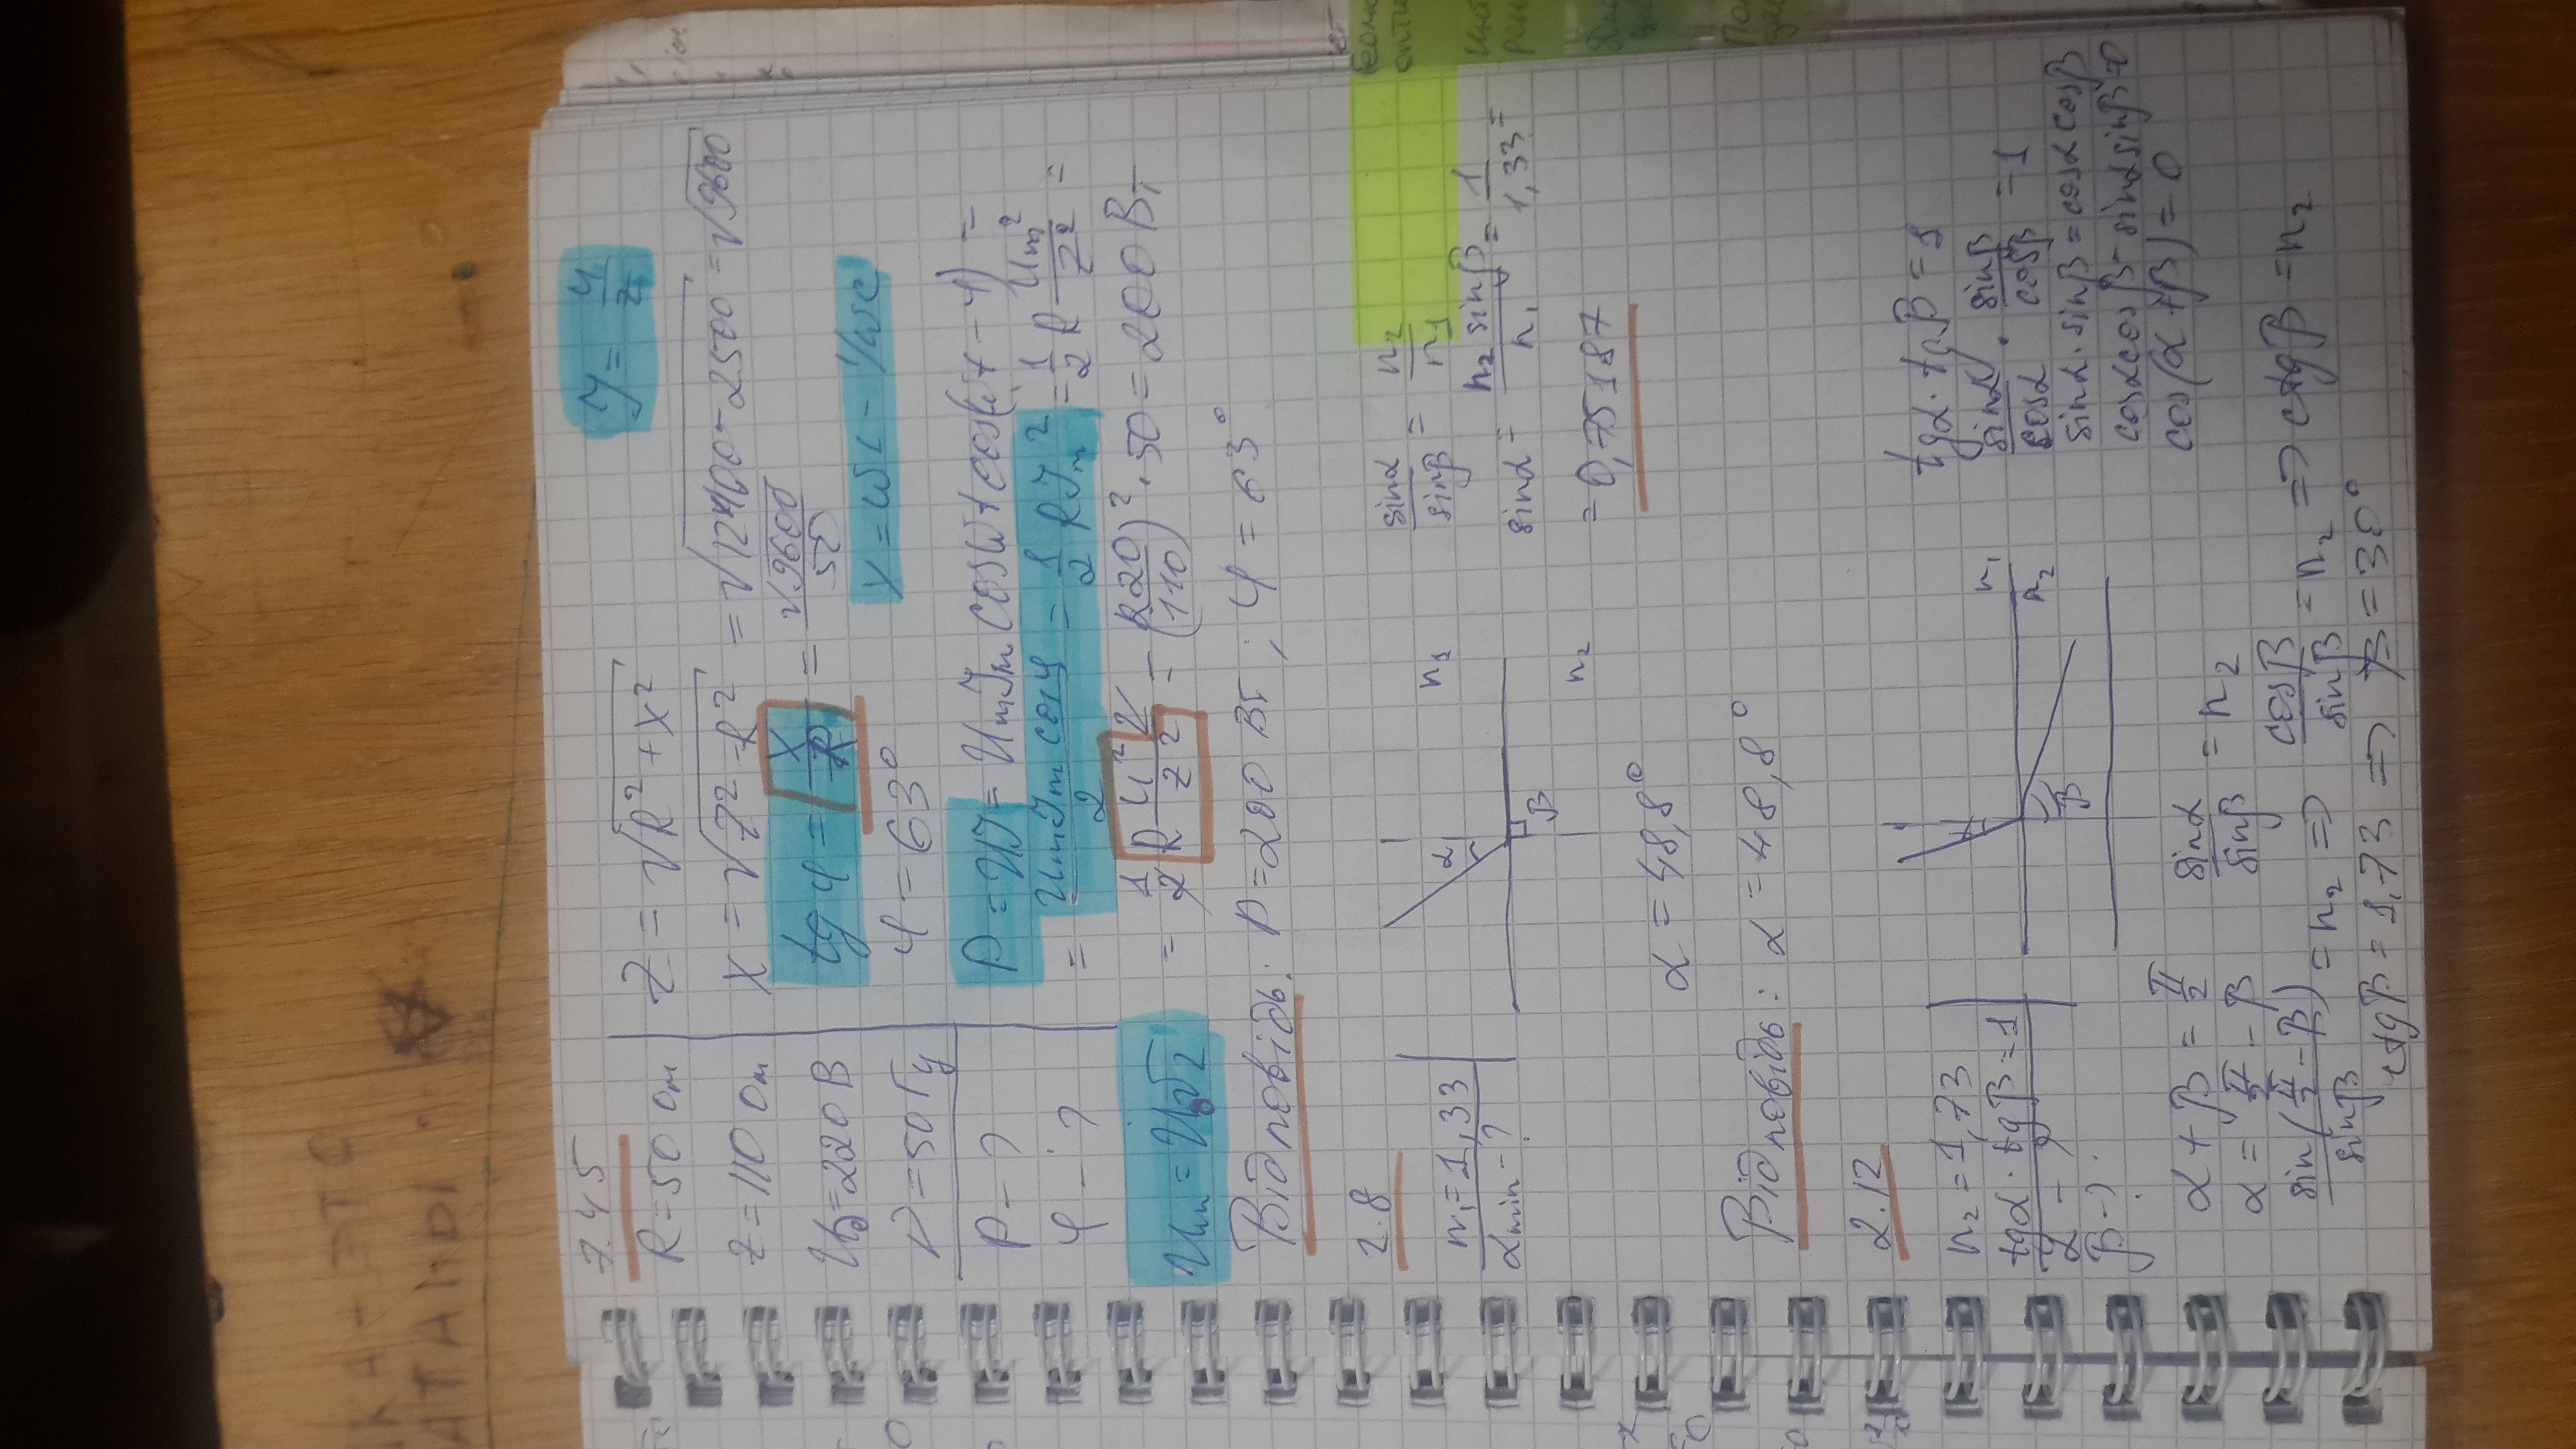 АТАНЫ
7.45
I = U/Z
R = 50 Ом
Z = √(R² + X²)
Z = 110 Ом
X = √(Z² - R²) = √(12100 - 2500) = √9600
U₀ = 220 В
tg φ = X/R = √9600/50
X = ωL - 1/ωC
ν = 50 Гц
φ = 63°
P - ?
P = UI = UmIm cosωt cos(ωt - φ) =
φ - ?
= UmIm cosφ/2 = 1/2 RIm² = 1/2 R Um²/Z² =
Um = U₀√2
= 1/2 R U² 2/Z² = (220/110)² · 50 = 200 Вт
Відповідь: P = 200 Вт; φ = 63°
2.8
n₁ = 1,33
αmin - ?
α
β
n₁
n₂
sinα/sinβ = n₂/n₁
sinα = n₂ sinβ/n₁ = 1/1,33 =
= 0,75187
α = 48,8°
Відповідь: α = 48,8°
2.12
n₂ = 1,73
tgα · tgβ = 1
α - ?
β - ?
n₁
n₂
β
tgα · tgβ = 1
sinα/cosα · sinβ/cosβ = 1
sinα · sinβ = cosα cosβ
cosαcosβ - sinαsinβ = 0
cos(α + β) = 0
α + β = π/2
sinα/sinβ = n₂
α = π/2 - β
sin(π/2 - β)/sinβ = n₂ => cosβ/sinβ = n₂ => ctgβ = n₂
ctgβ = 1,73 => β = 30°